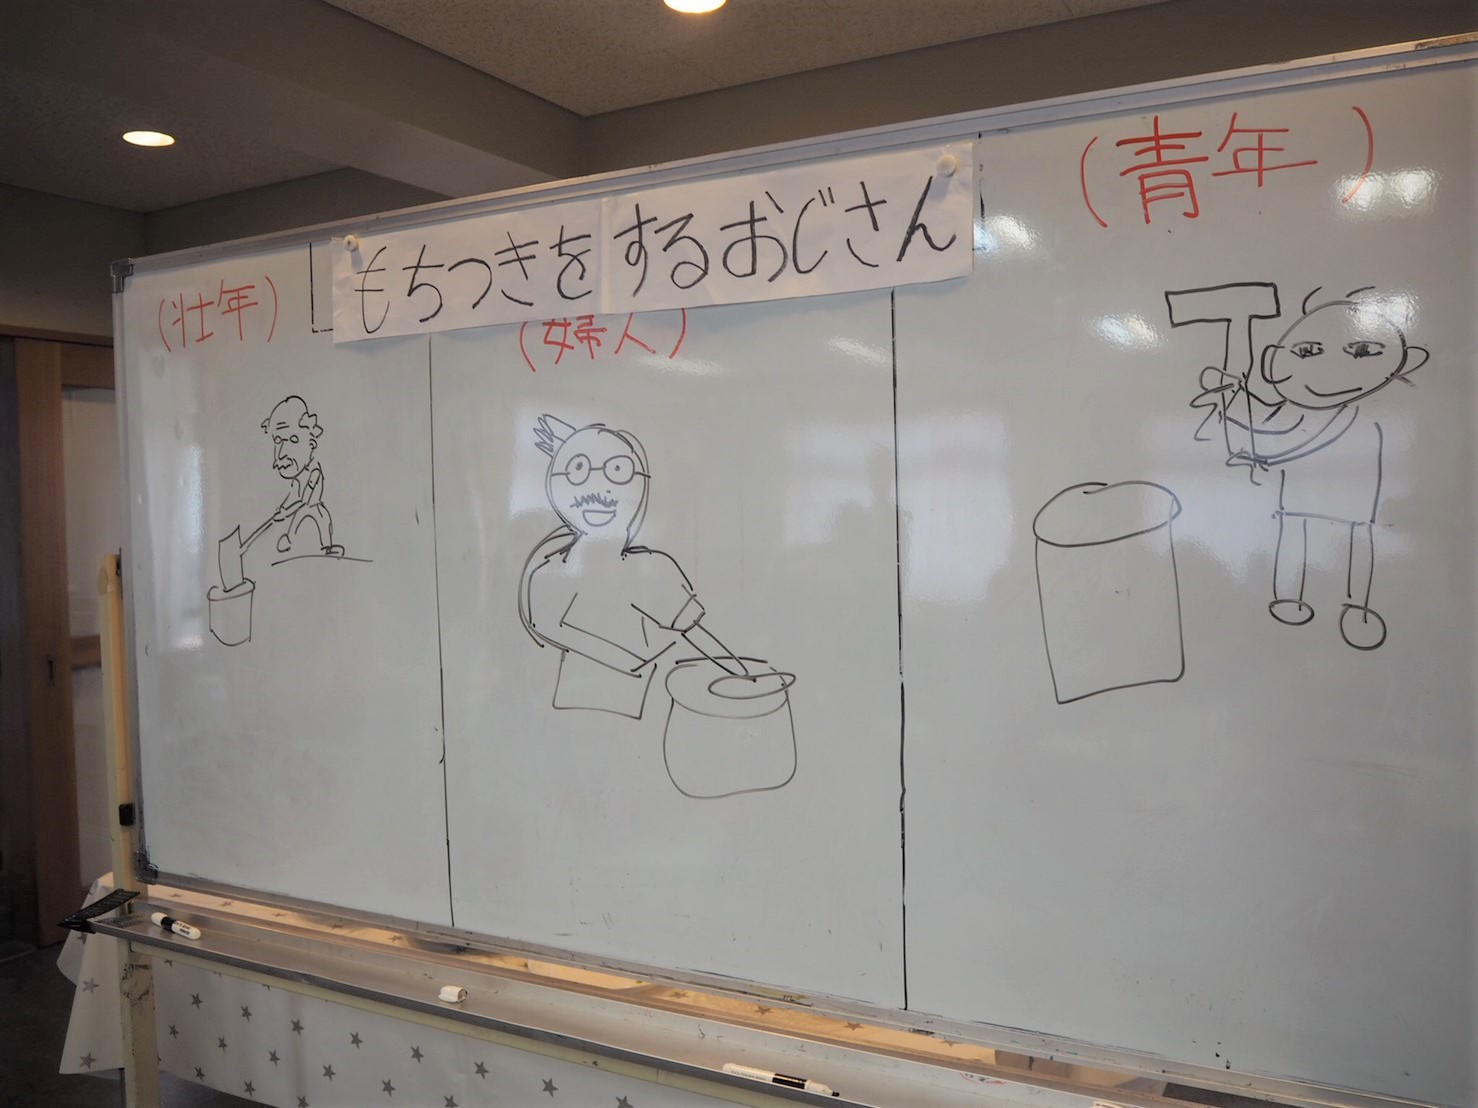 もちつきをするおじさん
(壮年)
(婦人)
(青年)